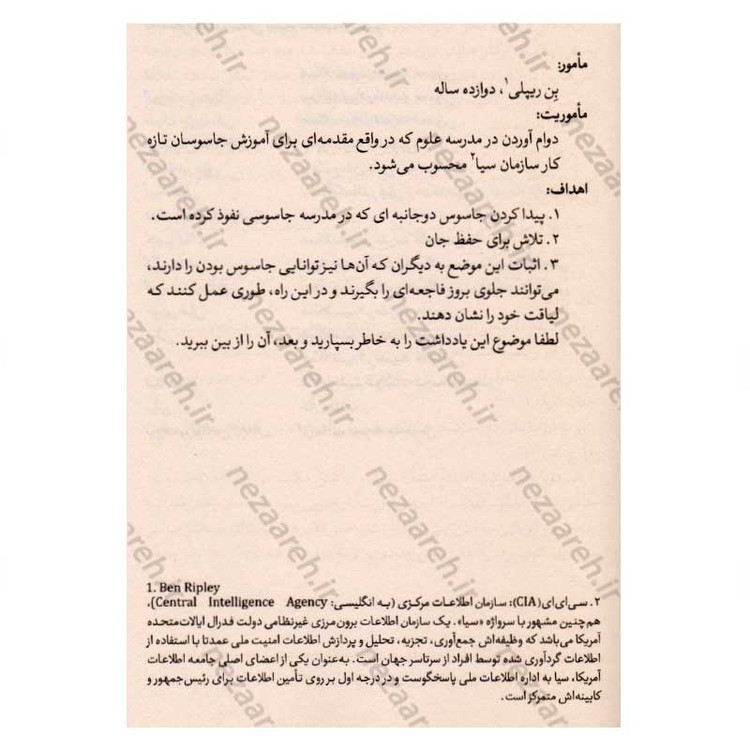 مأمور:
بِن ریپلی۱، دوازده ساله
مأموریت:
دوام آوردن در مدرسه علوم که در واقع مقدمه‌ای برای آموزش جاسوسان تازه
کار سازمان سیا۲ محسوب می‌شود.
اهداف:
۱. پیدا کردن جاسوس دوجانبه ای که در مدرسه جاسوسی نفوذ کرده است.
۲. تلاش برای حفظ جان
۳. اثبات این موضع به دیگران که آن‌ها نیز توانایی جاسوس بودن را دارند،
می‌توانند جلوی بروز فاجعه‌ای را بگیرند و در این راه، طوری عمل کنند که
لیاقت خود را نشان دهند.
لطفا موضوع این یادداشت را به خاطر بسپارید و بعد، آن را از بین ببرید.
1. Ben Ripley
۲. سی‌ای‌ای (CIA): سازمان اطلاعات مرکزی (به انگلیسی: Central Intelligence Agency)،
هم‌چنین مشهور با سرواژه «سیا». یک سازمان اطلاعات برون مرزی غیرنظامی دولت فدرال ایالات‌متحده
آمریکا می‌باشد که وظیفه‌اش جمع‌آوری، تجزیه، تحلیل و پردازش اطلاعات امنیت ملی عمدتا با استفاده از
اطلاعات گردآوری شده توسط افراد از سرتاسر جهان است. به‌عنوان یکی از اعضای اصلی جامعه اطلاعات
آمریکا، سیا به اداره اطلاعات ملی پاسخگوست و در درجه اول بر روی تأمین اطلاعات برای رئیس‌جمهور و
کابینه‌اش متمرکز است.
nezaareh.ir